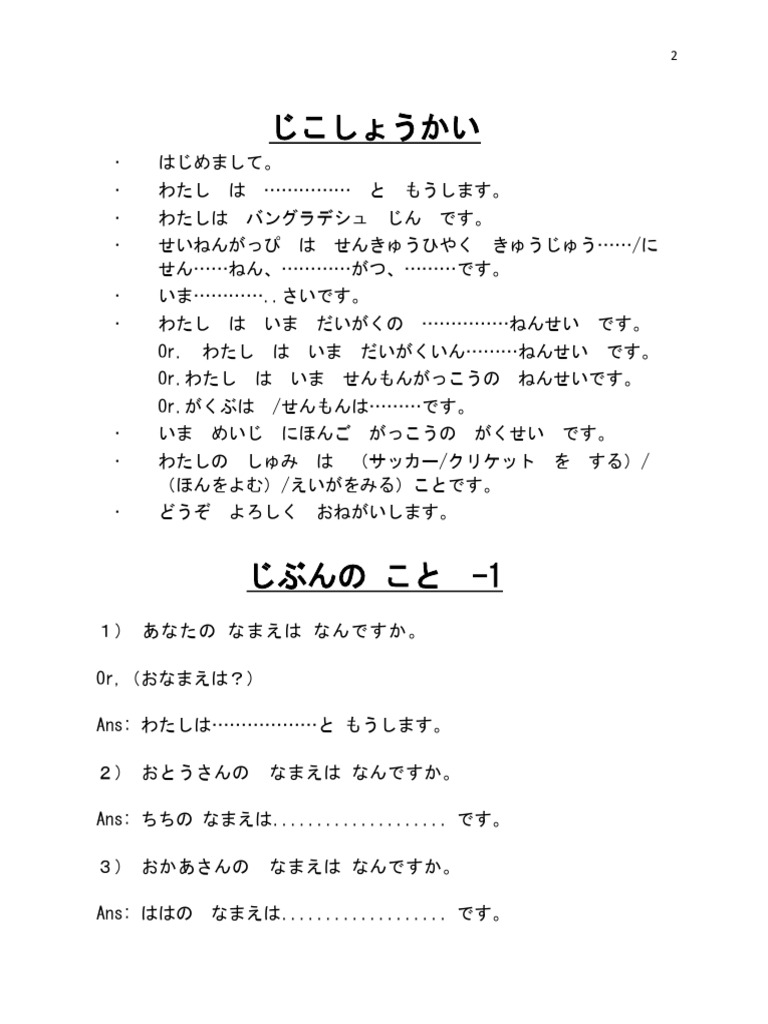 2
じこしょうかい
· はじめまして。
· わたし　は　……………　と　もうします。
· わたしは　バングラデシュ　じん　です。
· せいねんがっぴ　は　せんきゅうひやく　きゅうじゅう……/に
せん……ねん、…………がつ、………です。
· いま…………..さいです。
· わたし　は　いま　だいがくの　……………ねんせい　です。
Or.　わたし　は　いま　だいがくいん………ねんせい　です。
Or.わたし　は　いま　せんもんがっこうの　ねんせいです。
Or.がくぶは　/せんもんは………です。
· いま　めいじ　にほんご　がっこうの　がくせい　です。
· わたしの　しゅみ　は　（サッカー/クリケット　を　する）/
（ほんをよむ）/えいがをみる）ことです。
· どうぞ　よろしく　おねがいします。
じぶんの こと　-1
１） あなたの なまえは なんですか。
Or,（おなまえは？）
Ans: わたしは………………と もうします。
２） おとうさんの　なまえは なんですか。
Ans: ちちの なまえは.................... です。
３） おかあさんの　なまえは なんですか。
Ans: ははの　なまえは................... です。